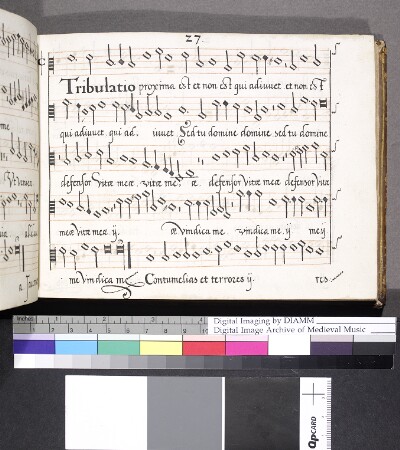 27
Tribulatio proxima est et non est qui adiuvet et non est
qui adiuvet qui ad. iuvet Sed tu domine domine sed tu domine
defensor vitæ meæ vitæ meæ æ defensor vitæ meæ defensor vitæ
meæ vitæ meæ ij. æ vindica me vindica me ij me ij
me vindica me Contumelias et terrores ij. res
me
Inches 1 2 3 4 5 6 7 8
Digital Imaging by DIAMM
Digital Image Archive of Medieval Music
QPCARD